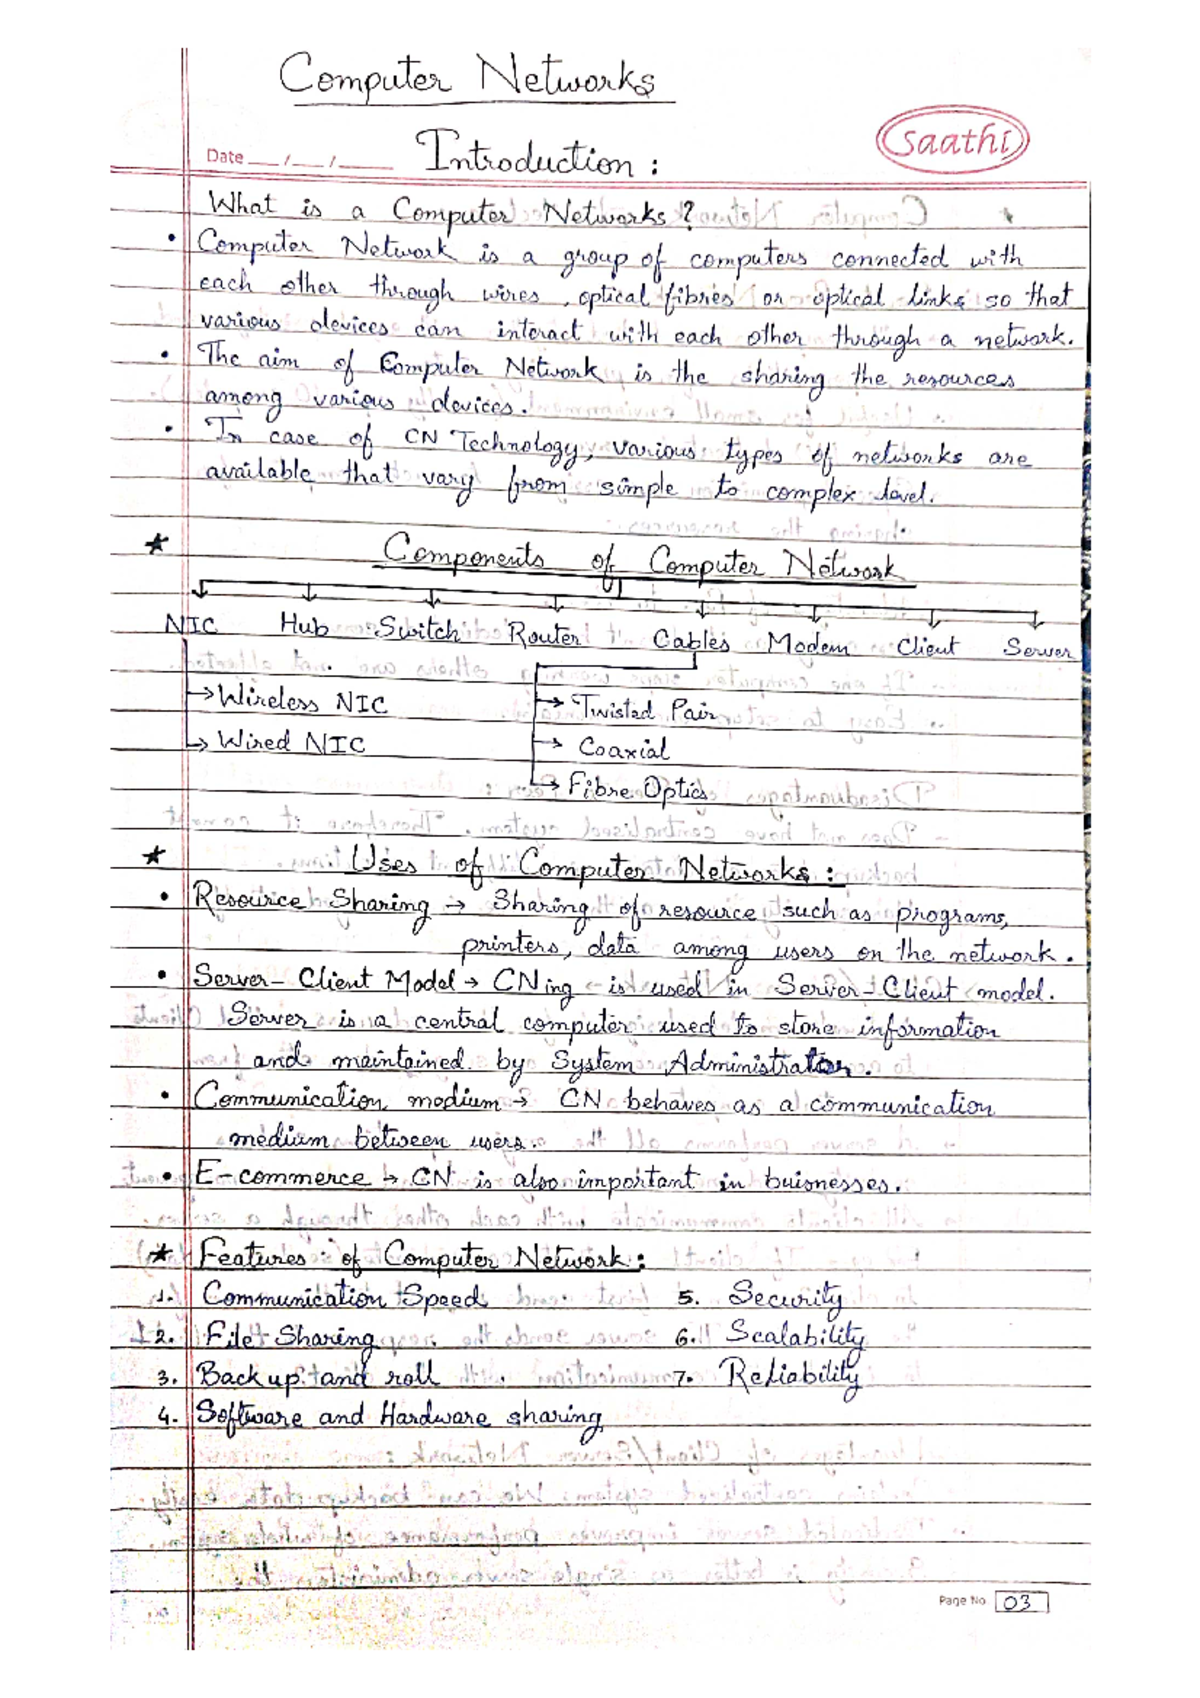 Computer Networks
Saathi
Date ___/___/___
Introduction :
What is a Computer Networks ?
• Computer Network is a group of computers connected with
each other through wires, optical fibres or optical links so that
various devices can interact with each other through a network.
• The aim of Computer Network is the sharing the resources
among various devices.
• In case of CN Technology, various types of networks are
available that vary from simple to complex level.
★ Components of Computer Network
NIC Hub Switch Router Cables Modem Client Server
→ Wireless NIC
→ Wired NIC
→ Twisted Pair
→ Coaxial
→ Fibre Optics
★ Uses of Computer Networks :
• Resource Sharing → Sharing of resource such as programs,
printers, data among users on the network.
• Server-Client Model → CNing - is used in Server-Client model.
Server is a central computer used to store information
and maintained by System Administrator.
• Communication medium → CN behaves as a communication
medium between users.
• E-commerce → CN is also important in buisnesses.
★ Features of Computer Network :
1. Communication Speed
2. File Sharing
3. Back up and roll
4. Software and Hardware sharing
5. Security
6. Scalability
7. Reliability
Page No 03